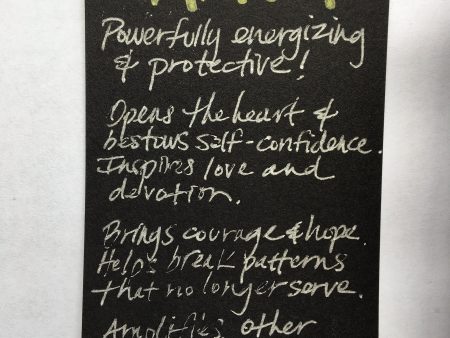 Powerfully energizing
& protective!
Opens the heart &
bestows self-confidence.
Inspires love and
devotion.
Brings courage & hope.
Helps break patterns
that no longer serve.
Amplifies other